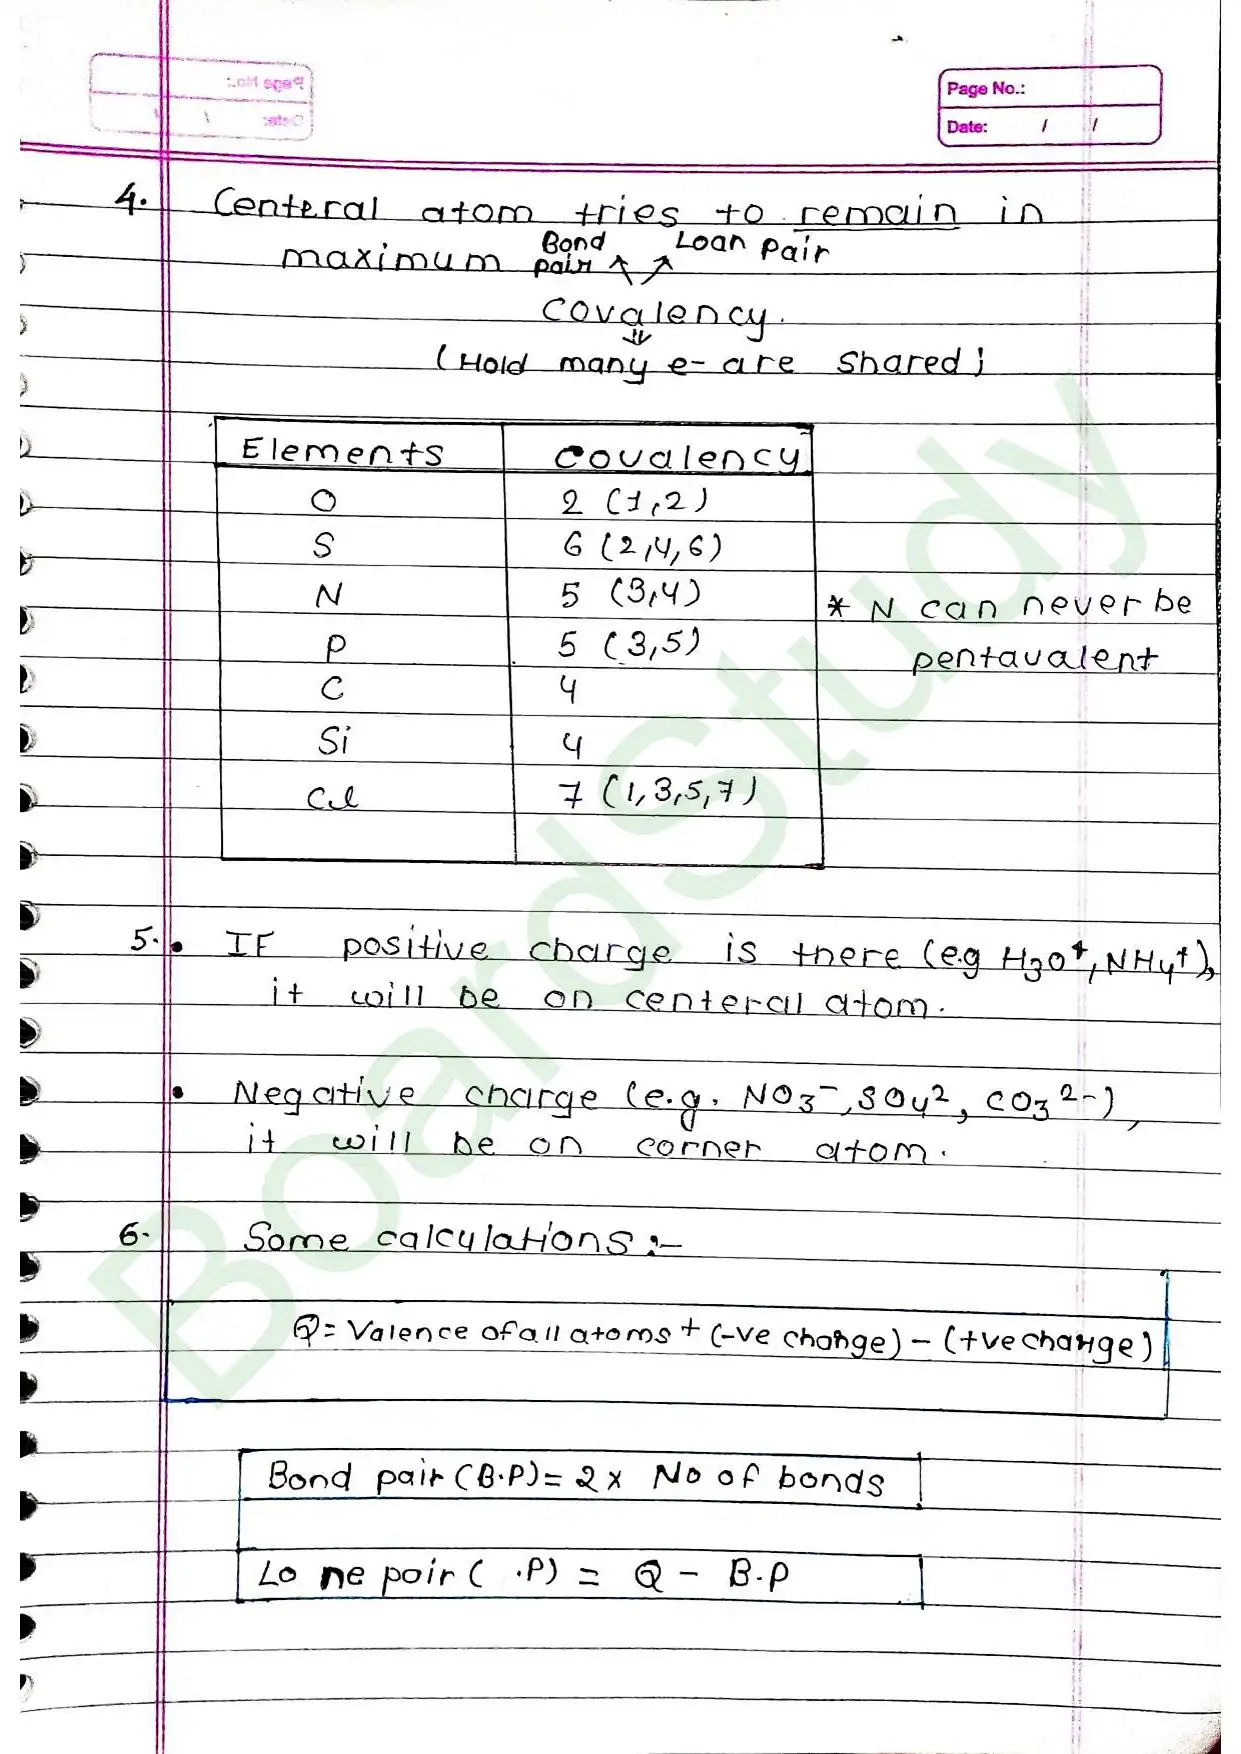 Page No.:
Date: / /
4. Centeral atom tries to remain in
maximum Bond pair Loan pair
covalency.
(Hold many e- are shared)
Elements covalency
O 2 (1,2)
S 6 (2,4,6)
N 5 (3,4)
* N can never be
P 5 (3,5)
pentavalent
C 4
Si 4
Cl 7 (1,3,5,7)
5. • IF positive charge is there (e.g H3O+, NH4+),
it will be on centeral atom.
• Negative charge (e.g. NO3-, SO4 2, CO3 2-),
it will be on corner atom.
6. Some calculations :-
Q = Valence of all atoms + (-ve charge) - (+ve charge)
Bond pair (B.P) = 2 x No of bonds
Lo ne pair ( .P) = Q - B.P
BoardStudy